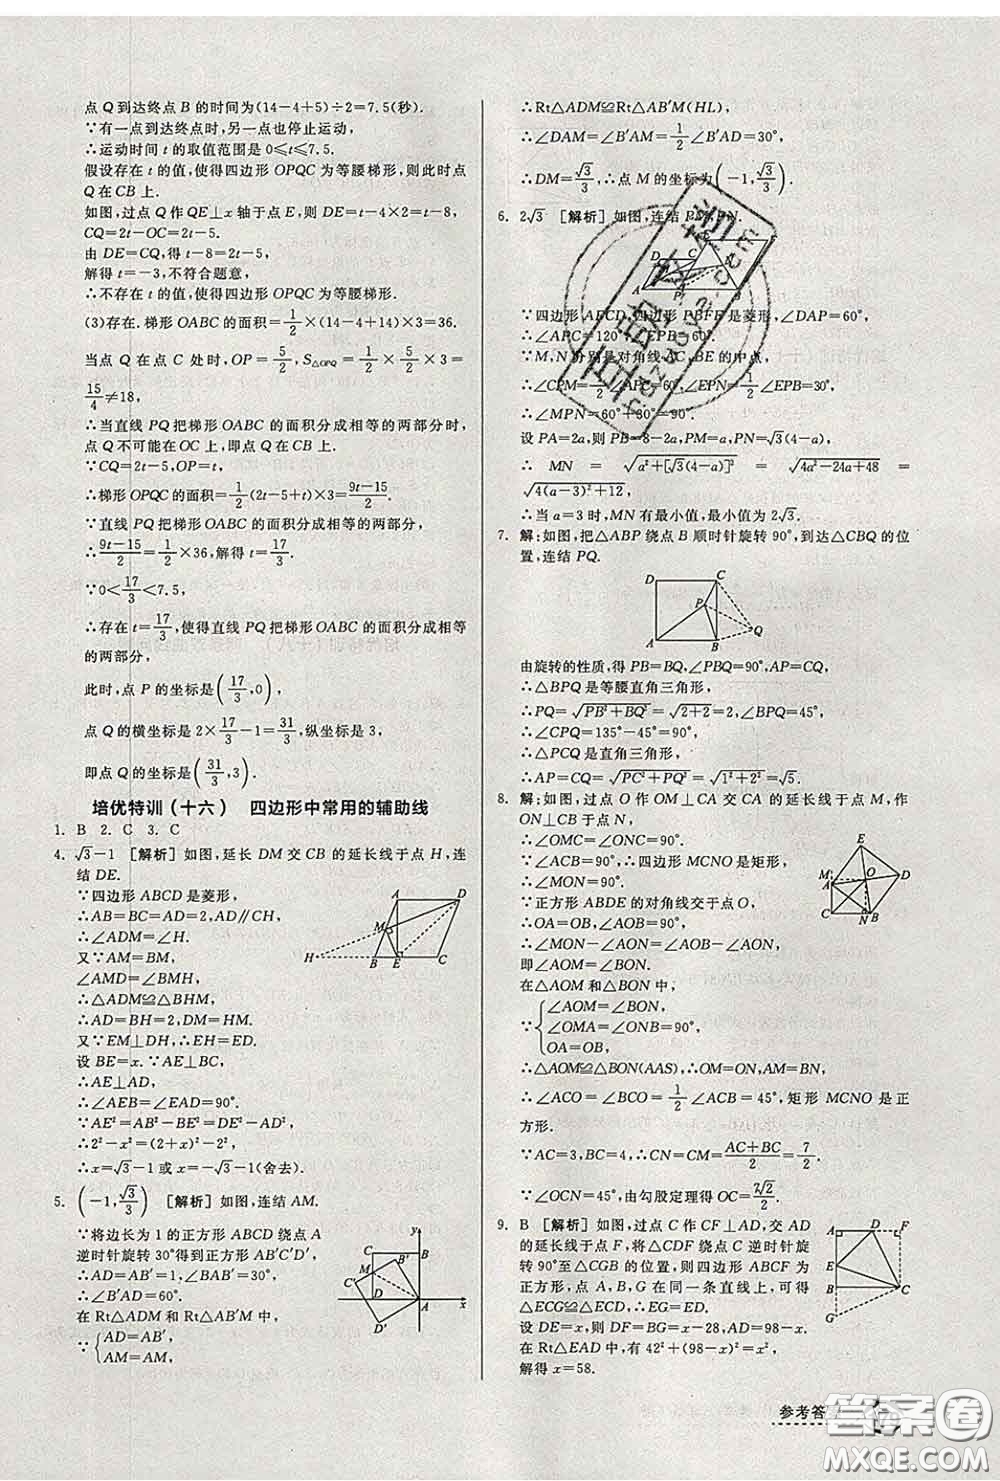 点 Q 到达终点 B 的时间为(14-4+5)÷2=7.5(秒).
∵有一点到达终点时,另一点也停止运动,
∴运动时间 t 的取值范围是 0≤t≤7.5.
假设存在 t 的值,使得四边形 OPQC 为等腰梯形,则此时点
Q 在 CB 上.
如图,过点 Q 作 QE⊥x 轴于点 E,则 DE=t-4×2=t-8,
CQ=2t-OC=2t-5.
由 DE=CQ,得 t-8=2t-5.
解得 t=-3,不符合题意,
∴不存在 t 的值,使得四边形 OPQC 为等腰梯形.
(3)存在.梯形 OABC 的面积=1/2×(14-4+14)×3=36.
当点 Q 在点 C 处时,OP=5/2,S△OPQ=1/2×5/2×3=
15/4≠18,
∴当直线 PQ 把梯形 OABC 的面积分成相等的两部分时,
点 Q 不可能在 OC 上,即点 Q 在 CB 上.
∵CQ=2t-5,OP=t,
∴梯形 OPQC 的面积=1/2(2t-5+t)×3=(9t-15)/2.
∵直线 PQ 把梯形 OABC 的面积分成相等的两部分,
∴(9t-15)/2=1/2×36,解得 t=17/3.
∵0<17/3<7.5,
∴存在 t=17/3,使得直线 PQ 把梯形 OABC 的面积分成相等
的两部分,
此时,点 P 的坐标是(17/3,0),
点 Q 的横坐标是 2×17/3-1=31/3,纵坐标是 3,
即点 Q 的坐标是(31/3,3).
培优特训(十六) 四边形中常用的辅助线
1. B 2. C 3. C
4. √3-1 [解析] 如图,延长 DM 交 CB 的延长线于点 H,连
结 DE.
∵四边形 ABCD 是菱形,
∴AB=BC=AD=2,AD∥CH,
∴∠ADM=∠H.
又∵AM=BM,
∠AMD=∠BMH,
∴△ADM≌△BHM,
∴AD=BH=2,DM=HM.
又∵EM⊥DH,∴EH=ED.
设 BE=x.∵AE⊥BC,
∴AE⊥AD,
∴∠AEB=∠EAD=90°.
∵AE²=AB²-BE²=DE²-AD²,
∴2²-x²=(2+x)²-2²,
∴x=√3-1或-√3-1(舍去).
A D M H B E C
5. (-1,√3/3) [解析] 如图,连结 AM.
∵将边长为 1 的正方形 ABCD 绕点 A
逆时针旋转 30°得到正方形 AB'C'D',
∴AD=AB'=1,∠BAB'=30°,
∴∠B'AD=60°.
在 Rt△ADM 和 Rt△AB'M 中,
∵{AD=AB',
AM=AM,
y C B' B M C' D A x D'
∴Rt△ADM≌Rt△AB'M(HL),
∴∠DAM=∠B'AM=1/2∠B'AD=30°,
∴DM=√3/3,∴点 M 的坐标为(-1,√3/3).
6. 2√3 [解析] 如图,连结 PM,PN.
∵四边形 APCD,四边形 PBFE 是菱形,∠DAP=60°,
∴∠APC=120°,∠EPB=60°.
∵M,N 分别是对角线 AC,BE 的中点,
∴∠CPM=1/2∠APC=60°,∠EPN=1/2∠EPB=30°,
∴∠MPN=60°+30°=90°.
设 PA=2a,则 PB=8-2a,PM=a,PN=√3(4-a),
∴MN=√(a²+[√3(4-a)]²)=√(4a²-24a+48)=
√(4(a-3)²+12),
∴当 a=3 时,MN 有最小值,最小值为 2√3.
7. 解:如图,把△ABP 绕点 B 顺时针旋转 90°,到达△CBQ 的位
置,连结 PQ.
D C P A B Q
由旋转的性质,得 PB=BQ,∠PBQ=90°,AP=CQ,
∴△BPQ 是等腰直角三角形,
∴PQ=√(PB²+BQ²)=√(2+2)=2,∠BPQ=45°,
∴∠CPQ=135°-45°=90°,
∴△PCQ 是直角三角形,
∴AP=CQ=√(PC²+PQ²)=√(1²+2²)=√5.
8. 解:如图,过点 O 作 OM⊥CA 交 CA 的延长线于点 M,作
ON⊥CB 于点 N,
∴∠OMC=∠ONC=∠ONB=90°.
∵∠ACB=90°,∴四边形 MCNO 是矩形,
∴∠MON=90°.
∵正方形 ABDE 的对角线交于点 O,
∴OA=OB,∠AOB=90°,
∴∠MON-∠AON=∠AOB-∠AON,
即∠AOM=∠BON.
在△AOM 和△BON 中,
∵{∠AOM=∠BON,
∠OMA=∠ONB=90°,
OA=OB,
∴△AOM≌△BON(AAS),∴OM=ON,AM=BN,
∴∠ACO=∠BCO=1/2∠ACB=45°,矩形 MCNO 是正
方形.
∵AC=3,BC=4,∴CM=CN=(AC+BC)/2=7/2.
∵∠OCN=45°,由勾股定理得 OC=7√2/2.
E M O D A C N B
9. B [解析] 如图,过点 C 作 CF⊥AD,交 AD
的延长线于点 F,将△CDF 绕点 C 逆时针旋转
90°至△CGB 的位置,则四边形 ABCF 为
正方形,点 A,B,G 在同一条直线上,可得
△ECG≌△ECD,∴EG=ED.
设 DE=x,则 DF=BG=x-28,AD=98-x.
在 Rt△EAD 中,有 42²+(98-x)²=x²,
解得 x=58.
A D F E B C G
参考答案
答案卷
MXQE.COM